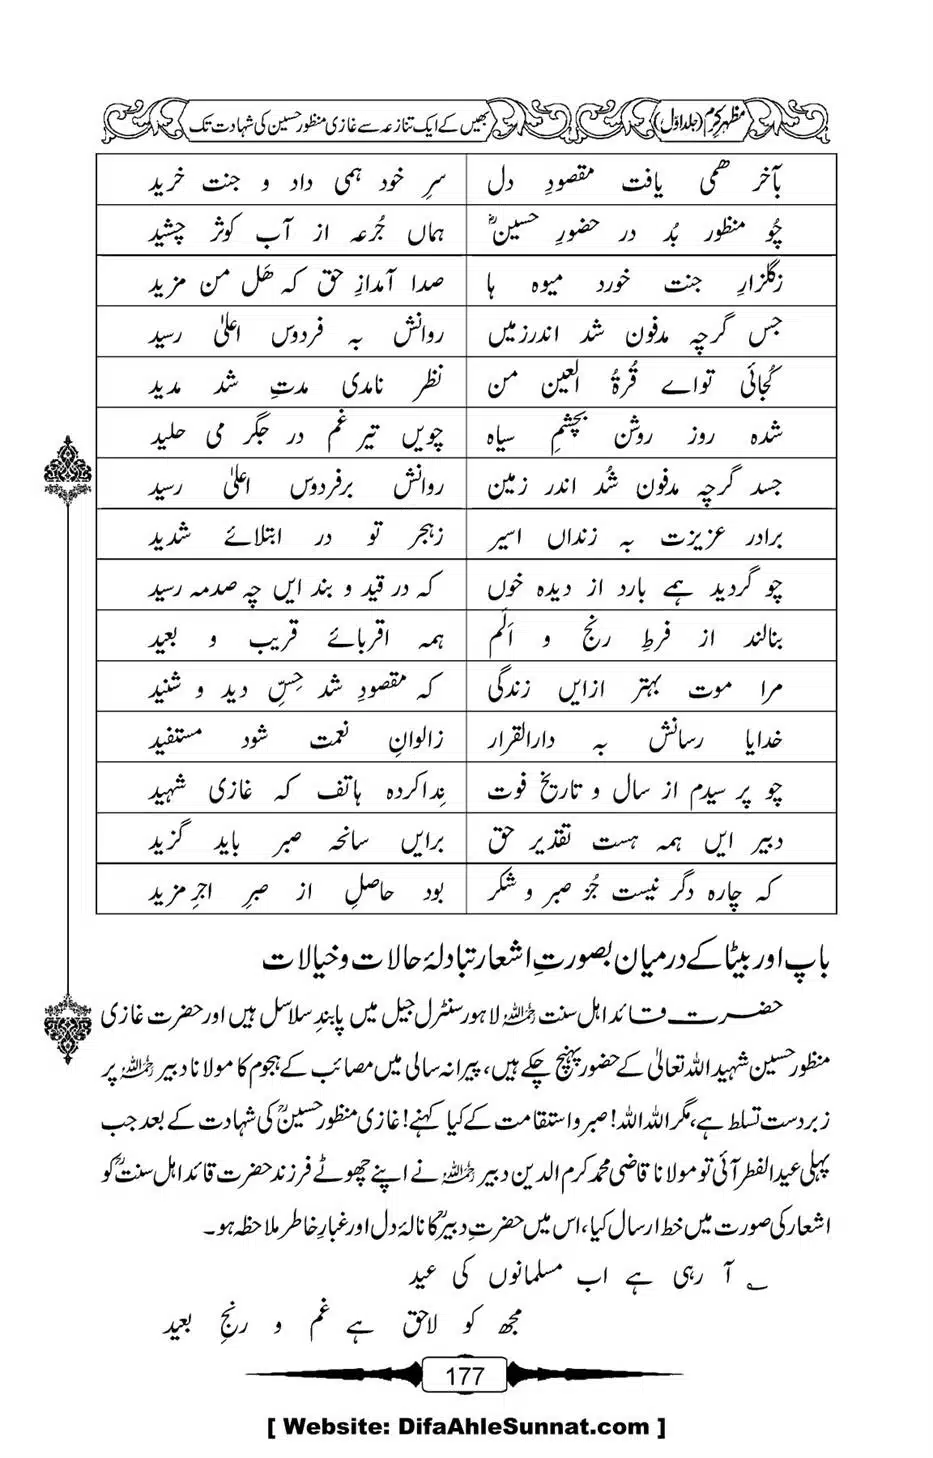 مظہرِ کرم (جلد اوّل) بھیں کے ایک تنازعہ سے غازی منظور حسین کی شہادت تک
بآخر ھمی یافت مقصودِ دل سرِ خود ہمی داد و جنت خرید
چُو منظور بُد در حضورِ حسینؓ ہماں جُرعہ از آب کوثر چشید
زگلزارِ جنت خورد میوہ ہا صدا آمداز حق کہ ھَل من مزید
جس گرچہ مدفون شد اندرزمیں روانش بہ فردوس اعلیٰ رسید
کُجائی تواے قُرۃُ العین من نظر نامدی مدتِ شد مدید
شدہ روز روشن بچشمِ سیاہ چویں تیر غم در جگر می حلید
جسد گرچہ مدفون شُد اندر زمین روانش برفردوس اعلیٰ رسید
برادر عزیزت بہ زنداں اسیر زہجر تو در ابتلائے شدید
چو گردید ہمے بارد از دیدہ خوں کہ در قید و بند ایں چہ صدمہ رسید
بنالند از فرطِ رنج و اَلَم ہمہ اقربائے قریب و بعید
مرا موت بہتر ازایں زندگی کہ مقصودِ شد حِسِّ دید و شنید
خدایا رسانش بہ دارالقرار زالوانِ نعمت شود مستفید
چو پر سیدم از سال و تاریخ فوت نِداکردہ ہاتف کہ غازی شہید
دبیر ایں ہمہ ہست تقدیر حق برایں سانحہ صبر باید گزید
کہ چارہ دگر نیست جُز صبر و شکر بود حاصلِ از صبرِ اجرِ مزید
باپ اور بیٹا کے درمیان بصورتِ اشعار تبادلۂ حالات و خیالات
حضرت قائد اہل سنت رحمہ اللہ لاہور سنٹرل جیل میں پابندِ سلاسل ہیں اور حضرت غازی
منظور حسین شہید اللہ تعالیٰ کے حضور پہنچ چکے ہیں، پیرانہ سالی میں مصائب کے ہجوم کا مولانا دبیر رحمہ اللہ پر
زبردست تسلط ہے، مگر اللہ اللہ! صبر و استقامت کے کیا کہنے! غازی منظور حسینؒ کی شہادت کے بعد جب
پہلی عیدالفطر آئی تو مولانا قاضی محمد کرم الدین دبیر رحمہ اللہ نے اپنے چھوٹے فرزند حضرت قائد اہل سنتؒ کو
اشعار کی صورت میں خط ارسال کیا، اس میں حضرتِ دبیرؒ کا نالۂ دل اور غبارِ خاطر ملاحظہ ہو۔
؎ آ رہی ہے اب مسلمانوں کی عید
مجھ کو لاحق ہے غم و رنجِ بعید
177
[ Website: DifaAhleSunnat.com ]